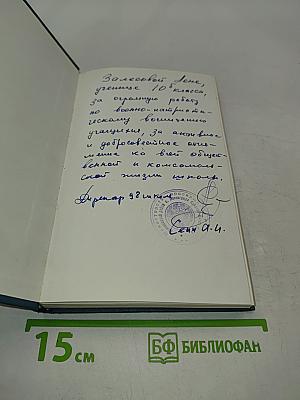 Залесовой Лене,
ученице 10 класса,
за огромную работу
по военно-патриоти-
ческому воспитанию
учащихся, за активное
и добросовестное отно-
шение ко всей общест-
венной и комсомоль-
ской жизни школы.
Директор 98 школы
Сенн А.И.
15 см
БФ БИБЛИОФАН